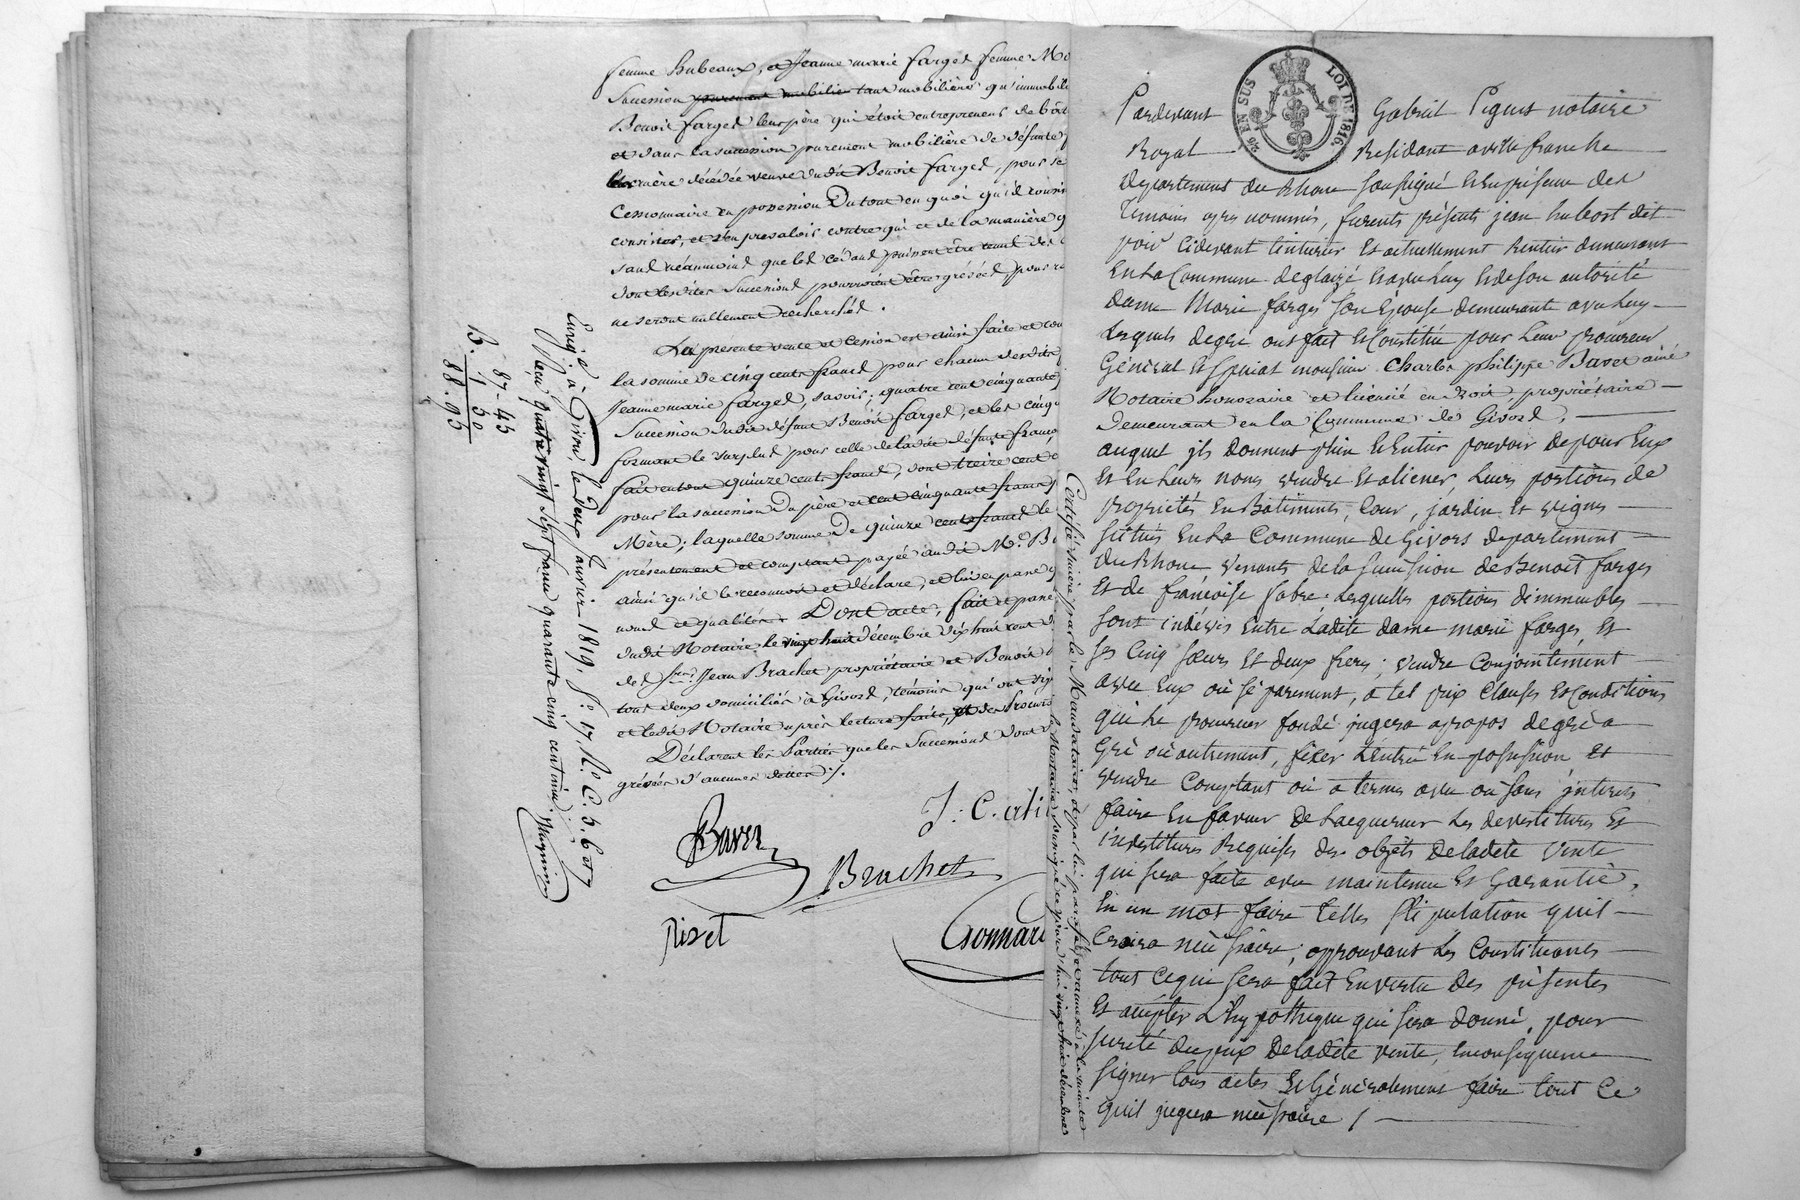 femme hubeaux, et Jeanne marie farges femme Mo
Succession purement mobilière tant mobilière qu'immobili
Benoit farges leur père qui étoit entrepreneur de bât
et dans la succession purement mobilière de défunte
mère décédée veuve dudit Benoit farges, pour se
Cessionnaire en possession du tout en quoi qu'il
consister, et s'en prévaloir contre qui et de la manière q
sans néanmoins que les cédans puissent être tenus des
dont lesdites Successions pourroient être grévées, pour
ne seront nullement recherchés.
La présente vente et Cession est ainsi faite et
la somme de cinq cents francs pour chacun desdits
Jeanne marie farges, savoir; quatre cent cinquante
Succession dudit défunt Benoit farges, et les cinqu
formant le surplus pour celle de ladite défunte franço
fait en tout quinze cents francs, dont treize cent
pour la succession du père et cent cinquante francs p
Mère; laquelle somme de quinze cents francs le
présentement et comptant payée audit Me. B
ainsi qu'il le reconnoit et déclare, et lui en passe q
noms et qualités. Dont acte, fait et passé
dudit Notaire le vingt huit décembre dix huit cent
des Srs. Jean Brachet propriétaire et Benoit
tous deux domiciliés à Givors, témoins qui ont sig
et ledit Notaire après lecture faite, et des procur
Déclarent les Parties que les Successions dont
grévées d'aucunes dettes ./.
Baver
Brachet
Rivet
Gonnard
Enrg.é à Givors, le deux Janvier 1819, f.o 17, R.o C. 5. 6 et 7
Reçu quatre vingt sept francs quarante cinq centimes.
87-45
1 50
88.95
Certifié sincère par le Mandataire, de par lui paraphé et annexé à la minute
le Notaire soussigné ce jourd'hui vingt huit décembre
9/6 EN SUS
LOI DE 1816.
Pardevant Gabriel Pignet notaire
Royal Residant avillefranche
departement du Rhone Soussigné Et En présence des
Temoins apres nommés, furents présents jean hubost dit
Cidevant teinturier Et actuellement Rentier demeurant
En la Commune de glaizé Et avec luy Et de Son autorité
dame Marie farges Son Epouse demeurante avec luy
Lesquels de gré ont fait Et Constitué pour Leur procureur
Général Et Spécial monsieur Charles philippe Baver ainé
Notaire honoraire et licencié en Droit, propriétaire
demeurant en la Commune de Givors,
auquel ils donnent plein Et Entier pouvoir de pour Eux
Et En Leurs noms vendre Et aliener, Leurs portions de
propriétés En Batiments, Cour, jardin Et vignes
Situés En la Commune de Givors departement
du Rhone venants de la Succession de Benoit farges
Et de françoise fabre. Lesquelles portions d'immeubles
Sont indévis Entre Ladite dame marie farges, Et
Ses Cinq Sœurs Et deux freres; vendre Conjointement
avec Eux ou Séparement, a tel prix Clauses Et Conditions
que Le procureur fondé jugera apropos de gré a
Gré ou autrement, fixer L'entrée En possession, Et
vendre Comptant ou a termes avec ou Sans interets
faire En faveur de Lacquereur Les devestitures Et
investitures Requises des objets de ladite vente
qui Sera faite avec maintenue Et Garantie,
En un mot faire telles Stipulation quil
Croira nécessaire; approuvant Les Constituants
tout Ce qui Sera fait En vertu des présentes
Et accepter L'hypotheque qui Sera donné, pour
Sureté du prix de ladite vente, En consequence
Signer tous actes Et Généralement faire tout Ce
quil jugera nécessaire /